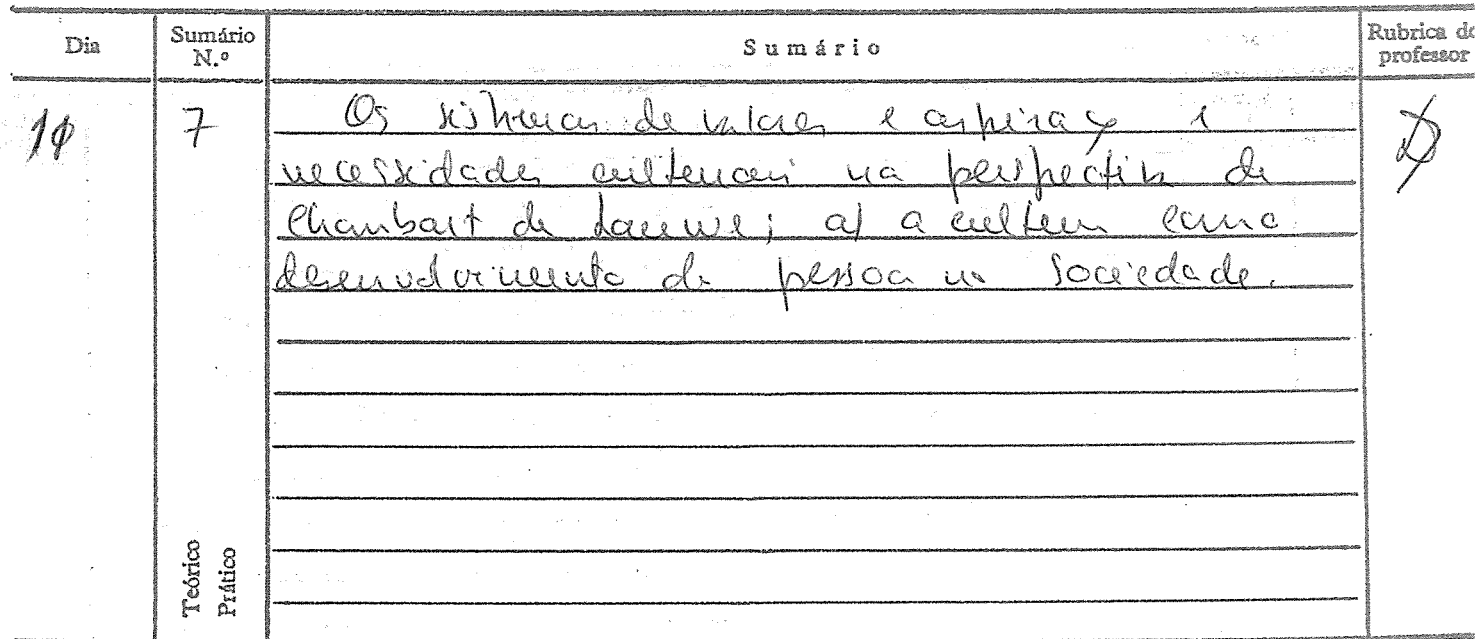 Dia
Sumário N.º
Sumário
Rubrica do professor
10
7
Os sistemas de valores e aspirações e
necessidades culturais na perspectiva de
Chombart de Lauwe; a) a cultura como
desenvolvimento da pessoa na sociedade.
Teórico
Prático